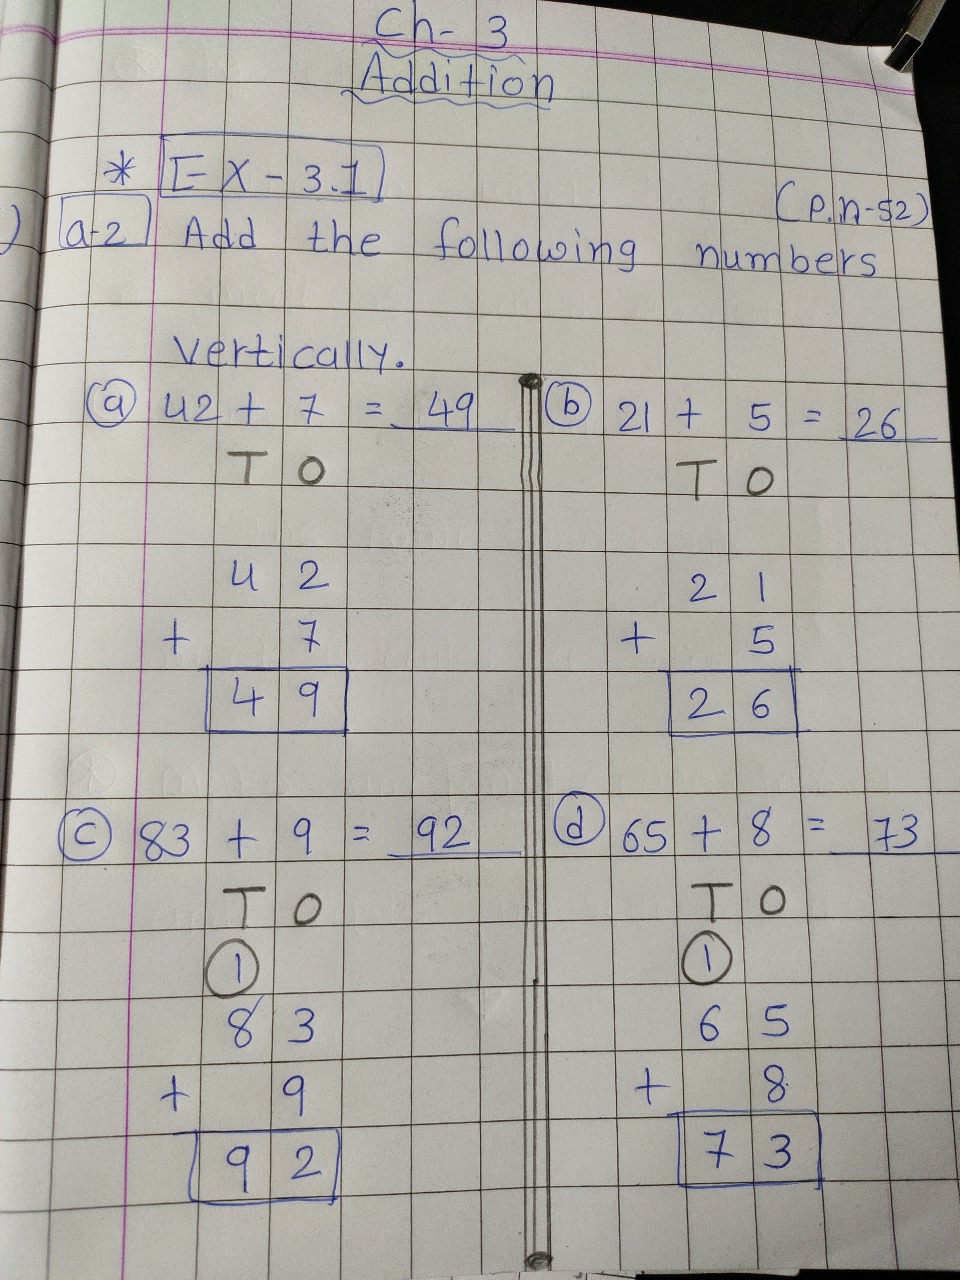 Ch- 3
Addition
* EX - 3.1
(P.n-52)
a-2 Add the following numbers
vertically.
a 42 + 7 = 49
T O
4 2
+ 7
4 9
b 21 + 5 = 26
T O
2 1
+ 5
2 6
c 83 + 9 = 92
T O
1
8 3
+ 9
9 2
d 65 + 8 = 73
T O
1
6 5
+ 8
7 3